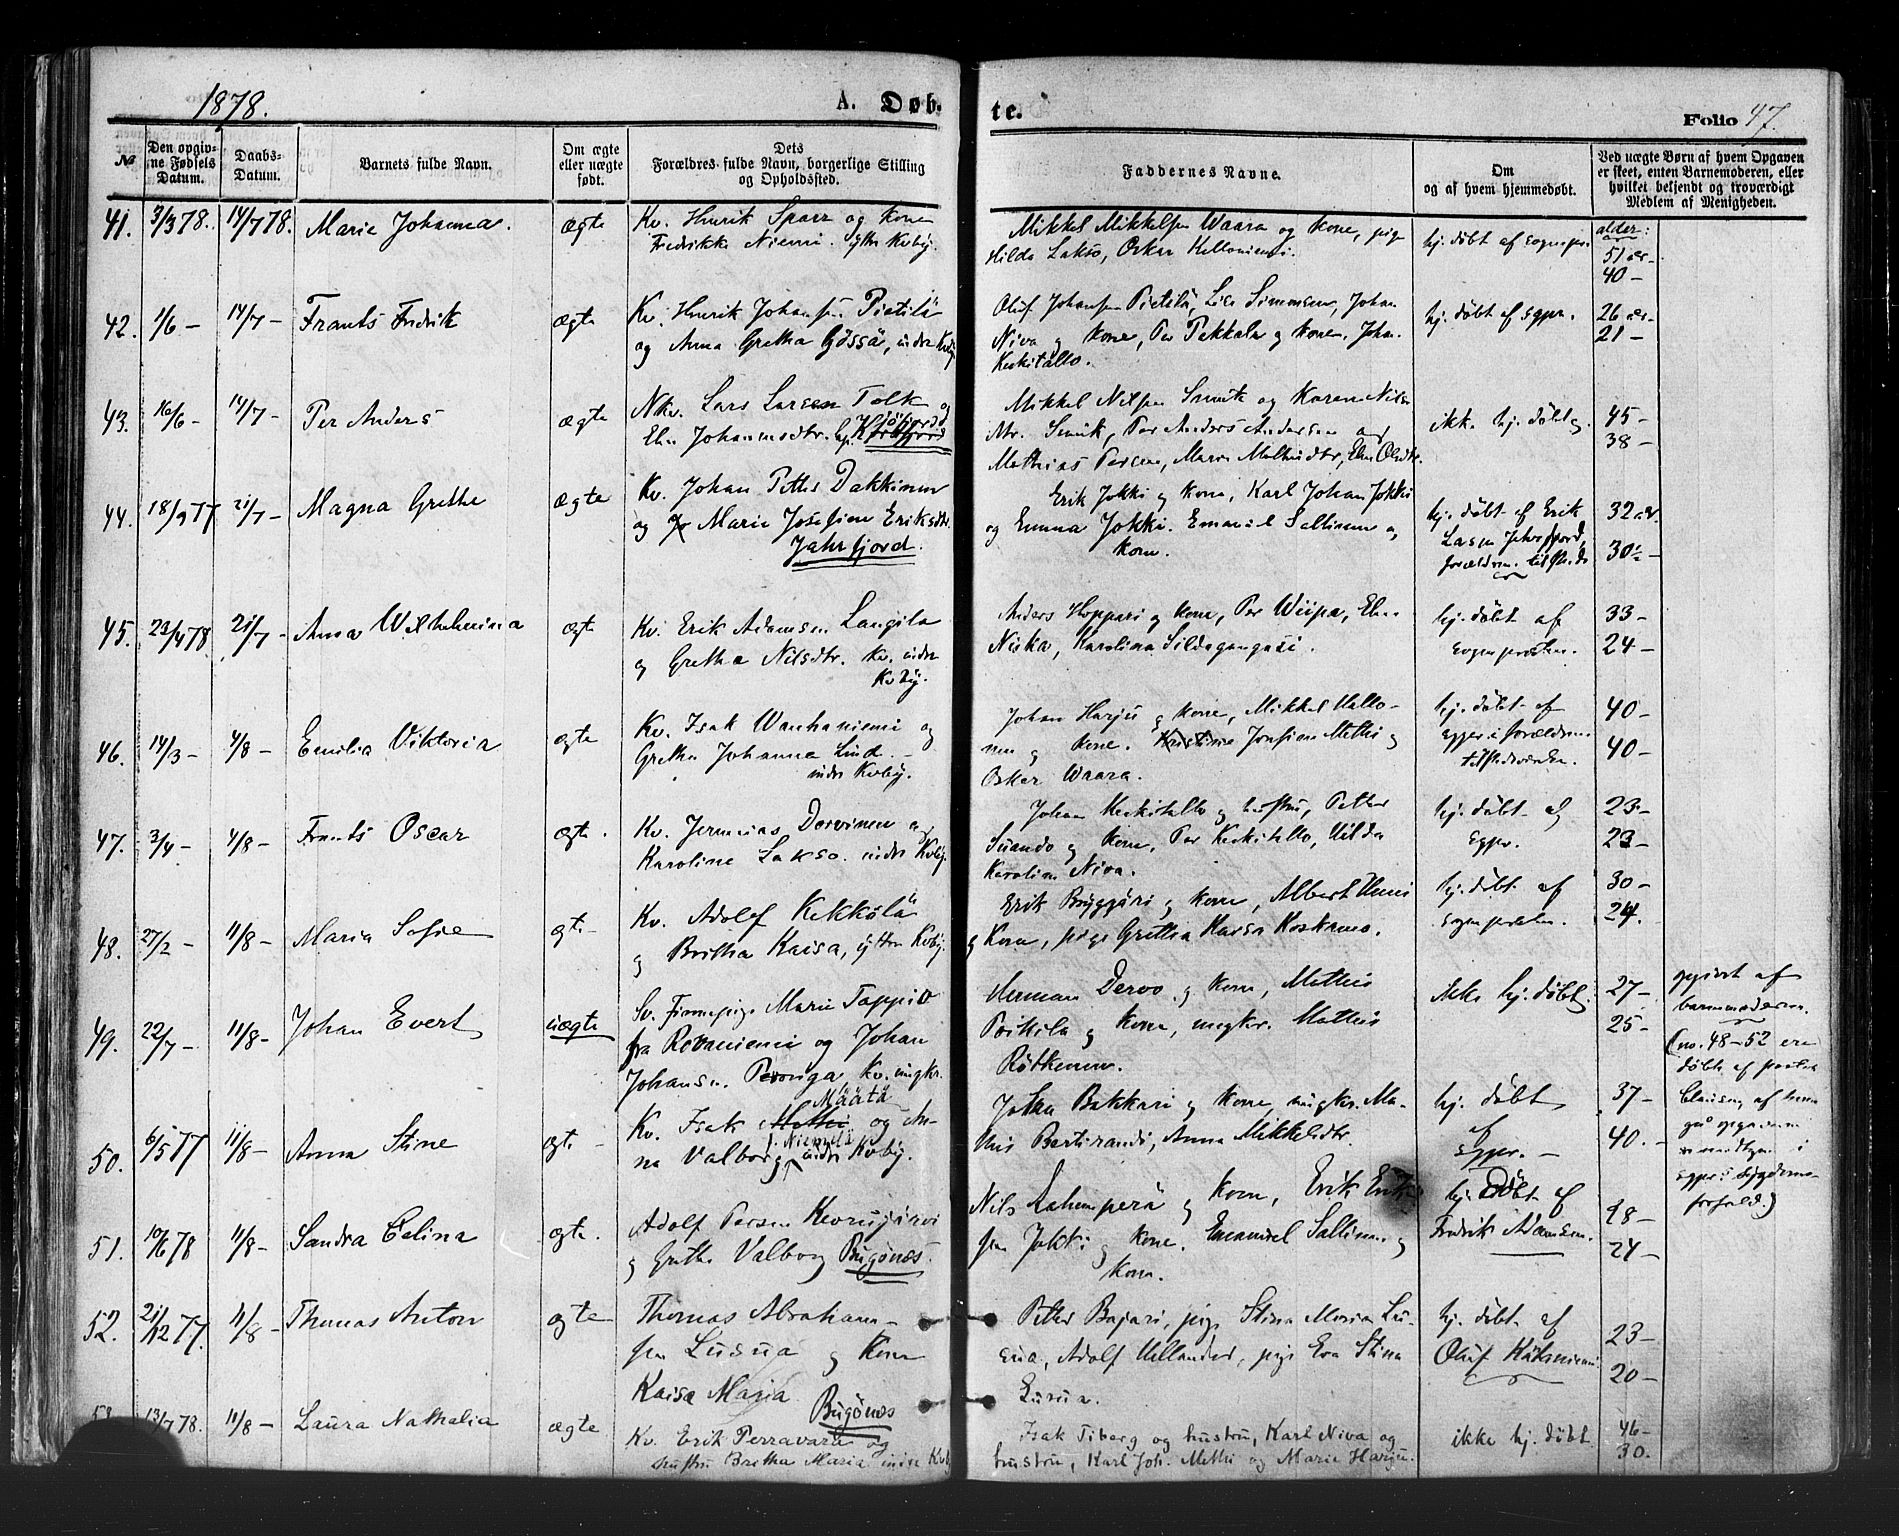 1878.
A. Døb.
№
Den opgiv-
ne Fødsels
Datum.
Daabs-
Datum.
Barnets fulde Navn.
Om ægte
eller uægte
født.
Dets
Forældres fulde Navn, borgerlige Stilling
og Opholdssted.
41. 3/3 78. 14/7 78. Marie Johanna. ægte
Kv. Henrik Sparr og kone
Fredrikke Niemi. yttre Kvby.
42. 1/6 — 14/7 — Frants Fredrik ægte
Kv. Henrik Johansen Pietilä
og Anna Gretha Gössä, indre Kvby.
43. 16/6 — 14/7 — Per Anders ægte
Nkv. Lars Larsen Tolk og
Elen Johannesdtr.
44. 18/9 77 21/7 — Magna Grethe ægte
Kv. Johan Petter Dakkinen
og Marie Josefine Eriksdtr.
Jahrfjord.
45. 23/4 78 21/7 — Anna Wilhelmina ægte
Kv. Erik Adamsen Langila
og Gretha Nilsdtr. Kv. indre
Kvby.
46. 14/3 — 4/8 — Emilia Viktoria ægte
Kv. Isak Wanhaniemi og
Gretha Johanna Lind.
indre Kvby.
47. 3/4 — 4/8 — Frants Oscar ægte.
Kv. Jeremias Dervinen og
Karoline Lakso. indre Kvby.
48. 27/2 — 11/8 — Maria Sofie ægte —
Kv. Adolf Kekkölä
og Britha Kaisa, yttre Kvby.
49. 22/7 — 11/8 — Johan Evert uægte
Sv. Finnepige Marie Tappio
fra Rovaniemi og Johan
Johansen. Peronga Kv. ungkr.
50. 6/5 77 11/8 — Anna Stine ægte —
Määtä
Kv. Isak Mathi og An-
f. Niemelä
na Valborg, indre Kvby.
51. 10/6 78 11/8 — Sandra Celina ægte.
Adolf Persen Kevrujärvi
og Grethe Valborg Bugönæs.
52. 21/12 77. 11/8 — Thomas Anton ægte
Thomas Abraham-
sen Lusua og Kone
Kaisa Maria
Bugönæs
53. 13/7 78. 11/8 — Laura Nathalia ægte
Kv. Erik Perravara og
hustru Bretha Maria indre Kvby
te.
Folio 47.
Faddernes Navne.
Om
og af hvem hjemmedøbt.
Ved uægte Børn af hvem Opgaven
er skeet, enten Barnemoderen, eller
hvilket bekjendt og troværdigt
Medlem af Menigheden.
Mikkel Mikkelsen Waara og kone, pige
Hilda Lakso, Oskar Kelloniemi.
hj. døbt af sognepr.
alder:
51 aar —
40 —
Oluf Johansen Pietilä, Lisa Simonsen, Johan
Niva og kone, Per Pekkala og kone, Johan
Keskitallo.
hj. døbt af Sgpr.
26 aar —
21 —
Mikkel Nilsen Smuk og Karen Nils-
dtr. Smuk, Per Anders Andersen og
Mathias Persen, Maren Mathisdtr, Elen Olsdtr.
ikke hj. døbt.
45 —
38 —
Erik Jokki og kone, Karl Johan Jokki
og Emma Jokki. Emanuel Sallinen og
kone.
hj. døbt af Erik
Lassen Jahrfjord,
forældrene tilstede
32 aar.
30½ —
Anders Hoppari og kone, Per Wiipa, Elen
Niska, Karolina Sildagangasi.
hj. døbt af
sognepresten.
33 —
24 —
Johan Harju og kone, Mikkel Mallo-
nen og kone. Kristine Josefine Mathi og
Oskar Waara.
hj. døbt af
sgpr. i forældrenes
tilstedeværelse.
40 —
40 —
Johan Keskitallo og hustru, Petter
Suando og kone, Per Keskitallo, Hilda
Karolina Niva.
hj. døbt af
Sgpr.
23 —
23 —
Erik Bryggjari og kone, Albert
og Kone, pige Gretha Kaisa Koskamo.
hj. døbt af
sognepresten.
30 —
24.
Herman Dervo og kone, Mathis
Poikila og kone, ungkr. Mathis
Rötkonen.
ikke hj. døbt.
27 —
25 —
opgivet af
barnemoderen.
(no. 48–52 ere
døbt af pastor
Clausen, af ham
er opgaverne
i
Sgprs sygdoms-
forfald.)
Johan Bakkari og kone, ungkr. Ma-
this Bertirandi, Anna Mikkelsdtr.
hj. døbt
af
Sgpr. —
37 —
40. —
Nils Lahenperä og kone, Erik Erik-
sen Jokki og kone. Emanuel Sallinen og
kone.
hj. døbt af
Fredrik Adamsen.
28 —
24 —
Petter Bajari, pige Stina Maria Lu-
sua, Adolf Hellander, pige Eva Stina
Lusua.
hj. døbt af
Oluf
23 —
20 —
Isak Tiberg og hustru, Karl Niva og
hustru, Karl Joh. Mathi og Marie Harju.
ikke hj. døbt
46 —
30.